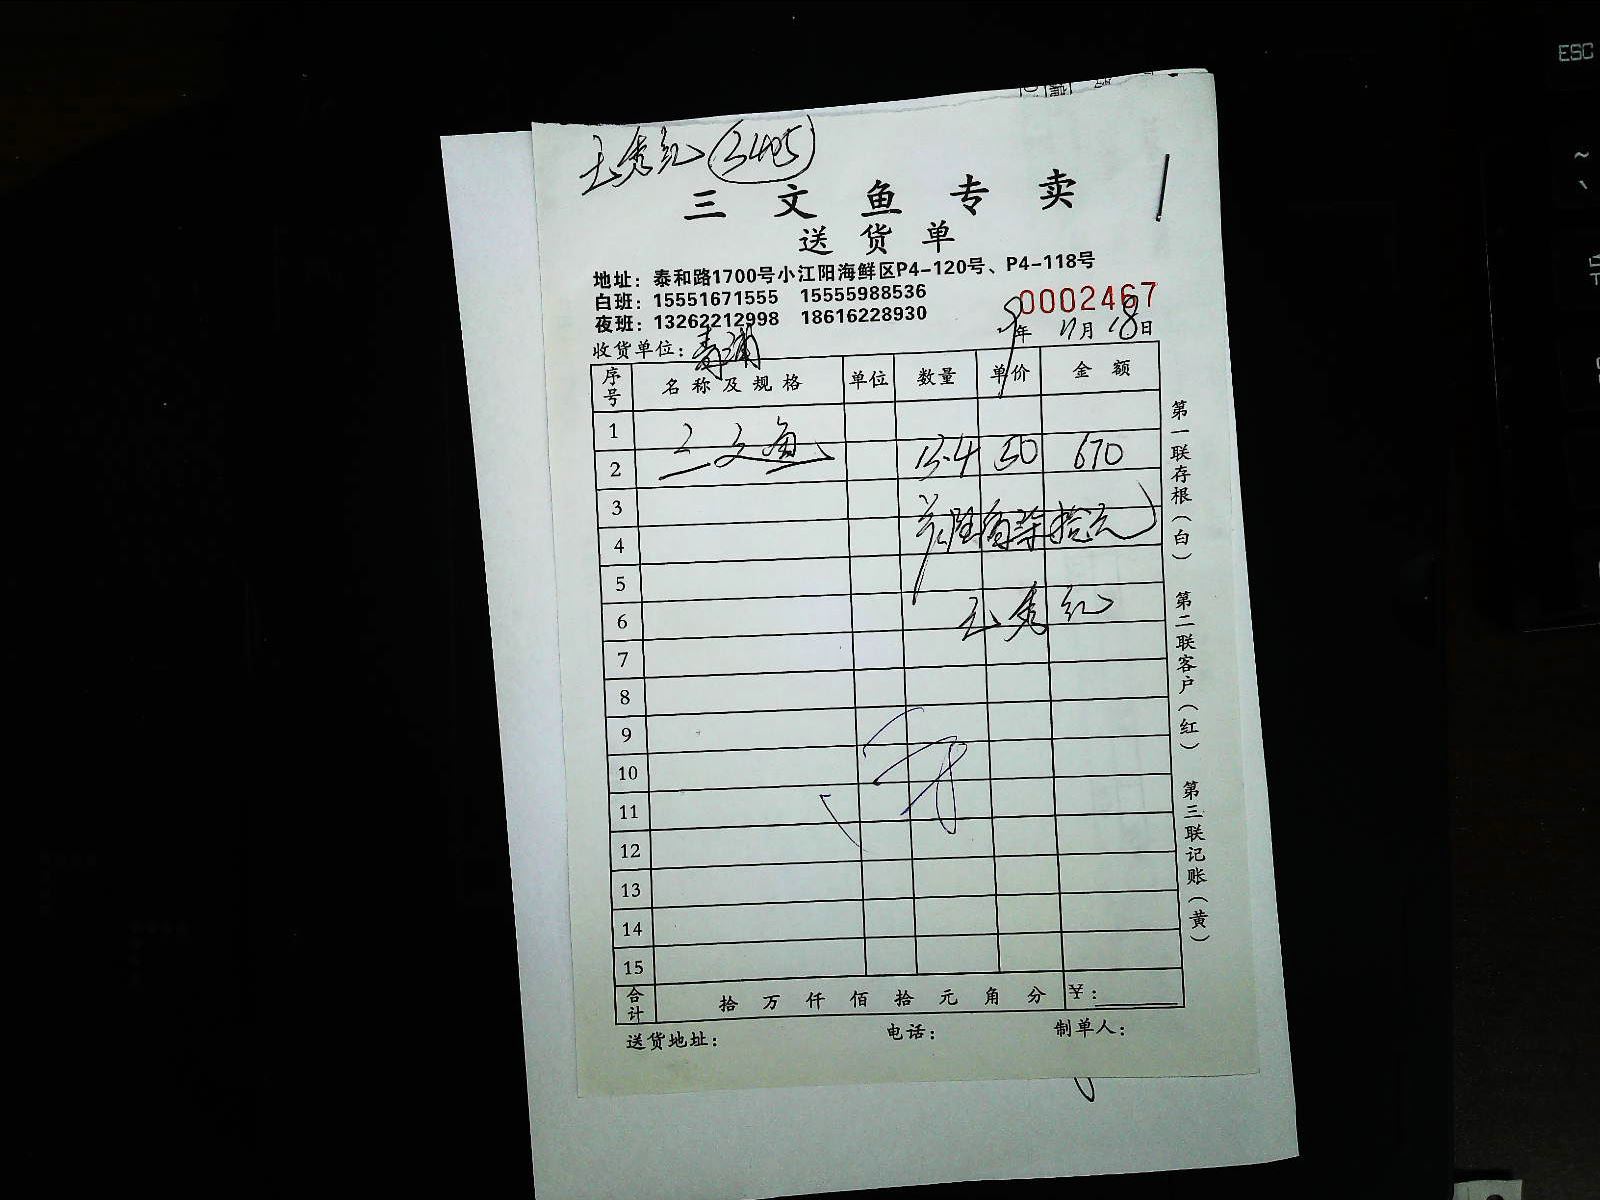 王秀红 (3405)
三文鱼专卖
送货单
地址：泰和路1700号小江阳海鲜区P4-120号、P4-118号
白班：15551671555 15555988536
夜班：13262212998 18616228930
0002467
9年 11月 18日
收货单位：
序号 名称及规格 单位 数量 单价 金额
1 三文鱼
2 13.4 50 670
3
4 共陆佰柒拾元
5
6 王秀红
7
8
9
10
11
12
13
14
15
合计 拾 万 仟 佰 拾 元 角 分 ¥：
送货地址： 电话： 制单人：
第一联存根（白） 第二联客户（红） 第三联记账（黄）
ESC